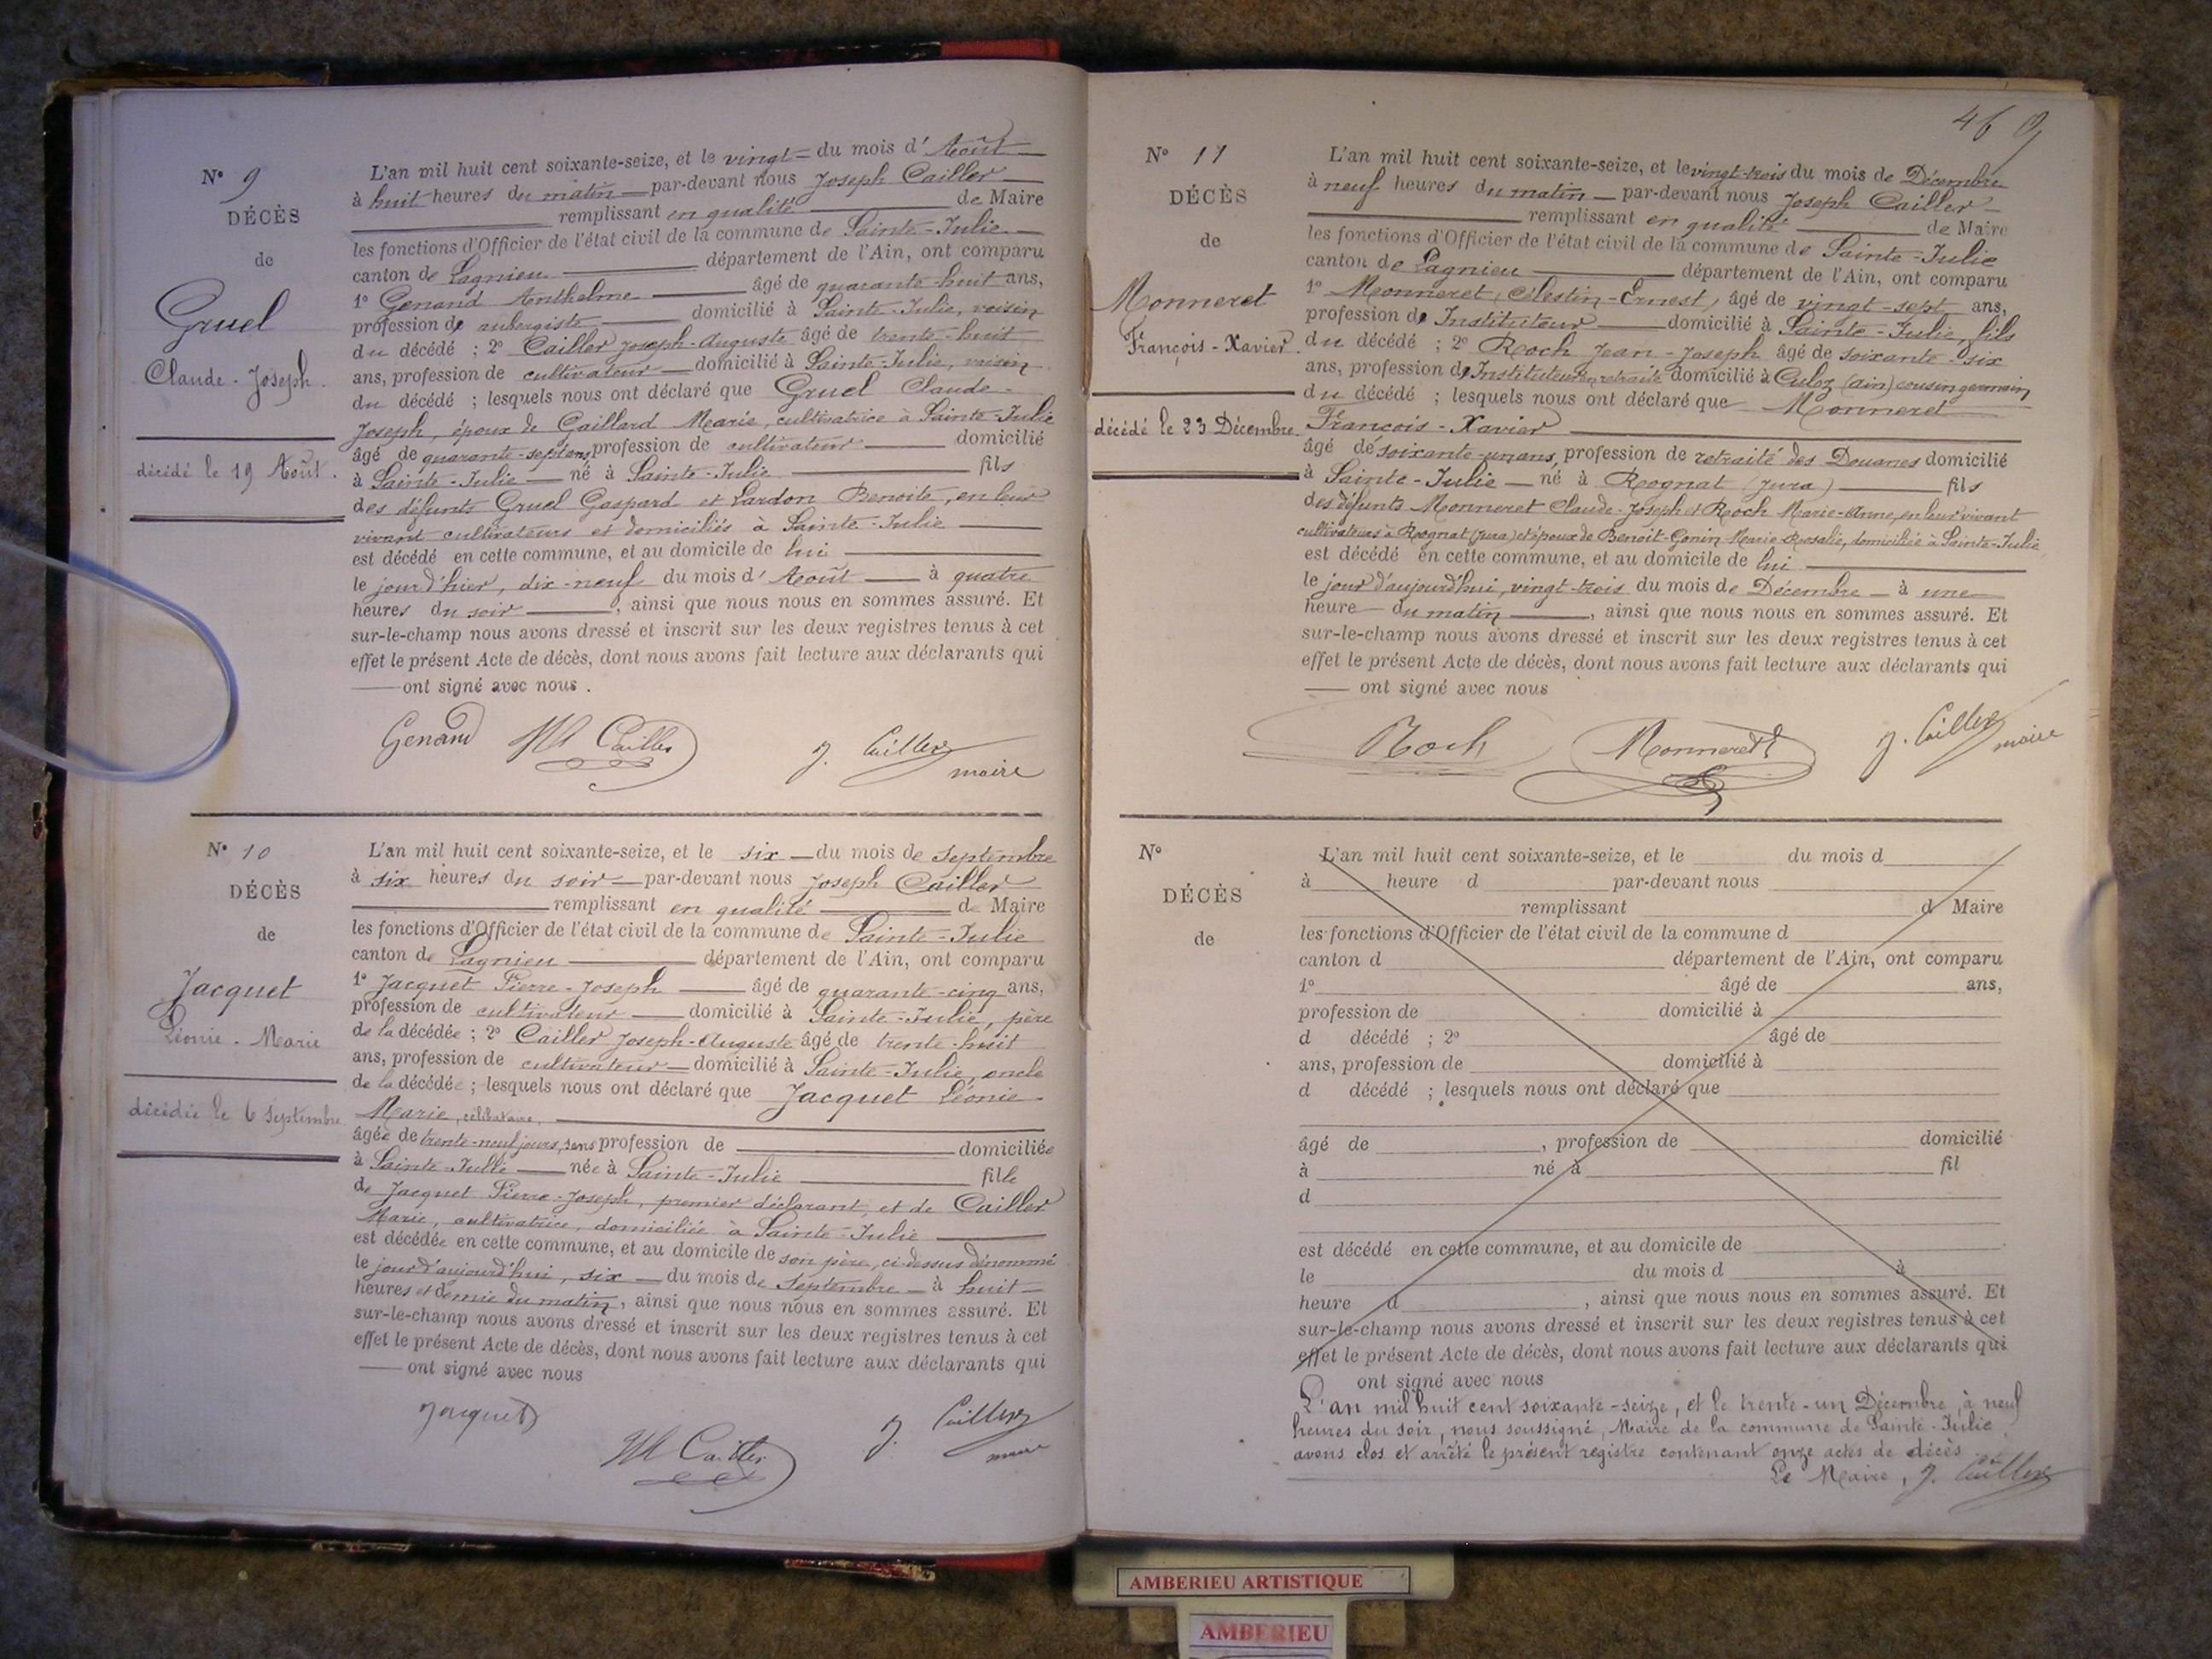 N° 9
DÉCÈS
de
Gruel
Claude-Joseph.
décédé le 19 Août.
L'an mil huit cent soixante-seize, et le vingt du mois d'Août
à huit heures du matin par-devant nous Joseph Cailler
remplissant en qualité de Maire
les fonctions d'Officier de l'état civil de la commune de Sainte-Julie
canton de Lagnieu département de l'Ain, ont comparu
1° Genand Anthelme âgé de quarante-huit ans,
profession de aubergiste domicilié à Sainte-Julie, voisin
du décédé ; 2° Cailler Joseph-Auguste âgé de trente-huit
ans, profession de cultivateur domicilié à Sainte-Julie, voisin
du décédé ; lesquels nous ont déclaré que Gruel Claude-
Joseph, époux de Caillard Marie, cultivatrice à Sainte-Julie
âgé de quarante-sept ans profession de cultivateur domicilié
à Sainte-Julie né à Sainte-Julie fils
des défunts Gruel Gaspard et Lardon Benoite, en leur
vivant cultivateurs et domiciliés à Sainte-Julie
est décédé en cette commune, et au domicile de lui
le jour d'hier, dix-neuf du mois d'Août à quatre
heures du soir , ainsi que nous nous en sommes assuré. Et
sur-le-champ nous avons dressé et inscrit sur les deux registres tenus à cet
effet le présent Acte de décès, dont nous avons fait lecture aux déclarants qui
ont signé avec nous.
Genand Cailler J. Cailler
maire
N° 10
DÉCÈS
de
Jacquet
Léonie-Marie
décédée le 6 Septembre
L'an mil huit cent soixante-seize, et le six du mois de Septembre
à six heures du soir par-devant nous Joseph Cailler
remplissant en qualité de Maire
les fonctions d'Officier de l'état civil de la commune de Sainte-Julie
canton de Lagnieu département de l'Ain, ont comparu
1° Jacquet Pierre-Joseph âgé de quarante-cinq ans,
profession de cultivateur domicilié à Sainte-Julie, père
de la décédée ; 2° Cailler Joseph-Auguste âgé de trente-huit
ans, profession de cultivateur domicilié à Sainte-Julie, oncle
de la décédée ; lesquels nous ont déclaré que Jacquet Léonie
Marie, célibataire,
âgée de trente-neuf jours, sans profession de domiciliée
à Sainte-Julie née à Sainte-Julie fille
de Jacquet Pierre-Joseph, premier déclarant, et de Cailler
Marie, cultivatrice, domiciliée à Sainte-Julie
est décédée en cette commune, et au domicile de son père, ci-dessus dénommé
le jour d'aujourd'hui, six du mois de Septembre à huit
heures et demie du matin, ainsi que nous nous en sommes assuré. Et
sur-le-champ nous avons dressé et inscrit sur les deux registres tenus à cet
effet le présent Acte de décès, dont nous avons fait lecture aux déclarants qui
ont signé avec nous
Jacquet
Cailler J. Cailler
maire
469
N° 11
DÉCÈS
de
Monneret
François-Xavier.
décédé le 23 Décembre.
L'an mil huit cent soixante-seize, et le vingt-trois du mois de Décembre
à neuf heures du matin par-devant nous Joseph Cailler
remplissant en qualité de Maire
les fonctions d'Officier de l'état civil de la commune de Sainte-Julie
canton de Lagnieu département de l'Ain, ont comparu
1° Monneret, Célestin-Ernest, âgé de vingt-sept ans,
profession de Instituteur domicilié à Sainte-Julie, fils
du décédé ; 2° Roch Jean-Joseph âgé de soixante-six
ans, profession de Instituteur en retraite domicilié à Culoz (ain) cousin germain
du décédé ; lesquels nous ont déclaré que Monneret
François-Xavier
âgé de soixante-un ans, profession de retraité des Douanes domicilié
à Sainte-Julie né à Rognat (Jura) fils
des défunts Monneret Claude-Joseph et Roch Marie-Anne, en leur vivant
cultivateurs à Rognat (Jura) et époux de Benoit-Gonin Marie-Rosalie, domiciliée à Sainte-Julie
est décédé en cette commune, et au domicile de lui
le jour d'aujourd'hui, vingt-trois du mois de Décembre à une
heure du matin , ainsi que nous nous en sommes assuré. Et
sur-le-champ nous avons dressé et inscrit sur les deux registres tenus à cet
effet le présent Acte de décès, dont nous avons fait lecture aux déclarants qui
ont signé avec nous
Roch Monneret J. Cailler
maire
N°
DÉCÈS
de
L'an mil huit cent soixante-seize, et le du mois d
à heure d par-devant nous
remplissant d Maire
les fonctions d'Officier de l'état civil de la commune d
canton d département de l'Ain, ont comparu
1° âgé de ans,
profession de domicilié à
d décédé ; 2° âgé de
ans, profession de domicilié à
d décédé ; lesquels nous ont déclaré que
âgé de , profession de domicilié
à né à fil
d
est décédé en cette commune, et au domicile de
le du mois d à
heure d , ainsi que nous nous en sommes assuré. Et
sur-le-champ nous avons dressé et inscrit sur les deux registres tenus à cet
effet le présent Acte de décès, dont nous avons fait lecture aux déclarants qui
ont signé avec nous
L'an mil huit cent soixante-seize, et le trente-un Décembre, à neuf
heures du soir, nous soussigné, Maire de la commune de Sainte-Julie,
avons clos et arrêté le présent registre contenant onze actes de décès.
Le Maire, J. Cailler
AMBERIEU ARTISTIQUE
AMBERIEU